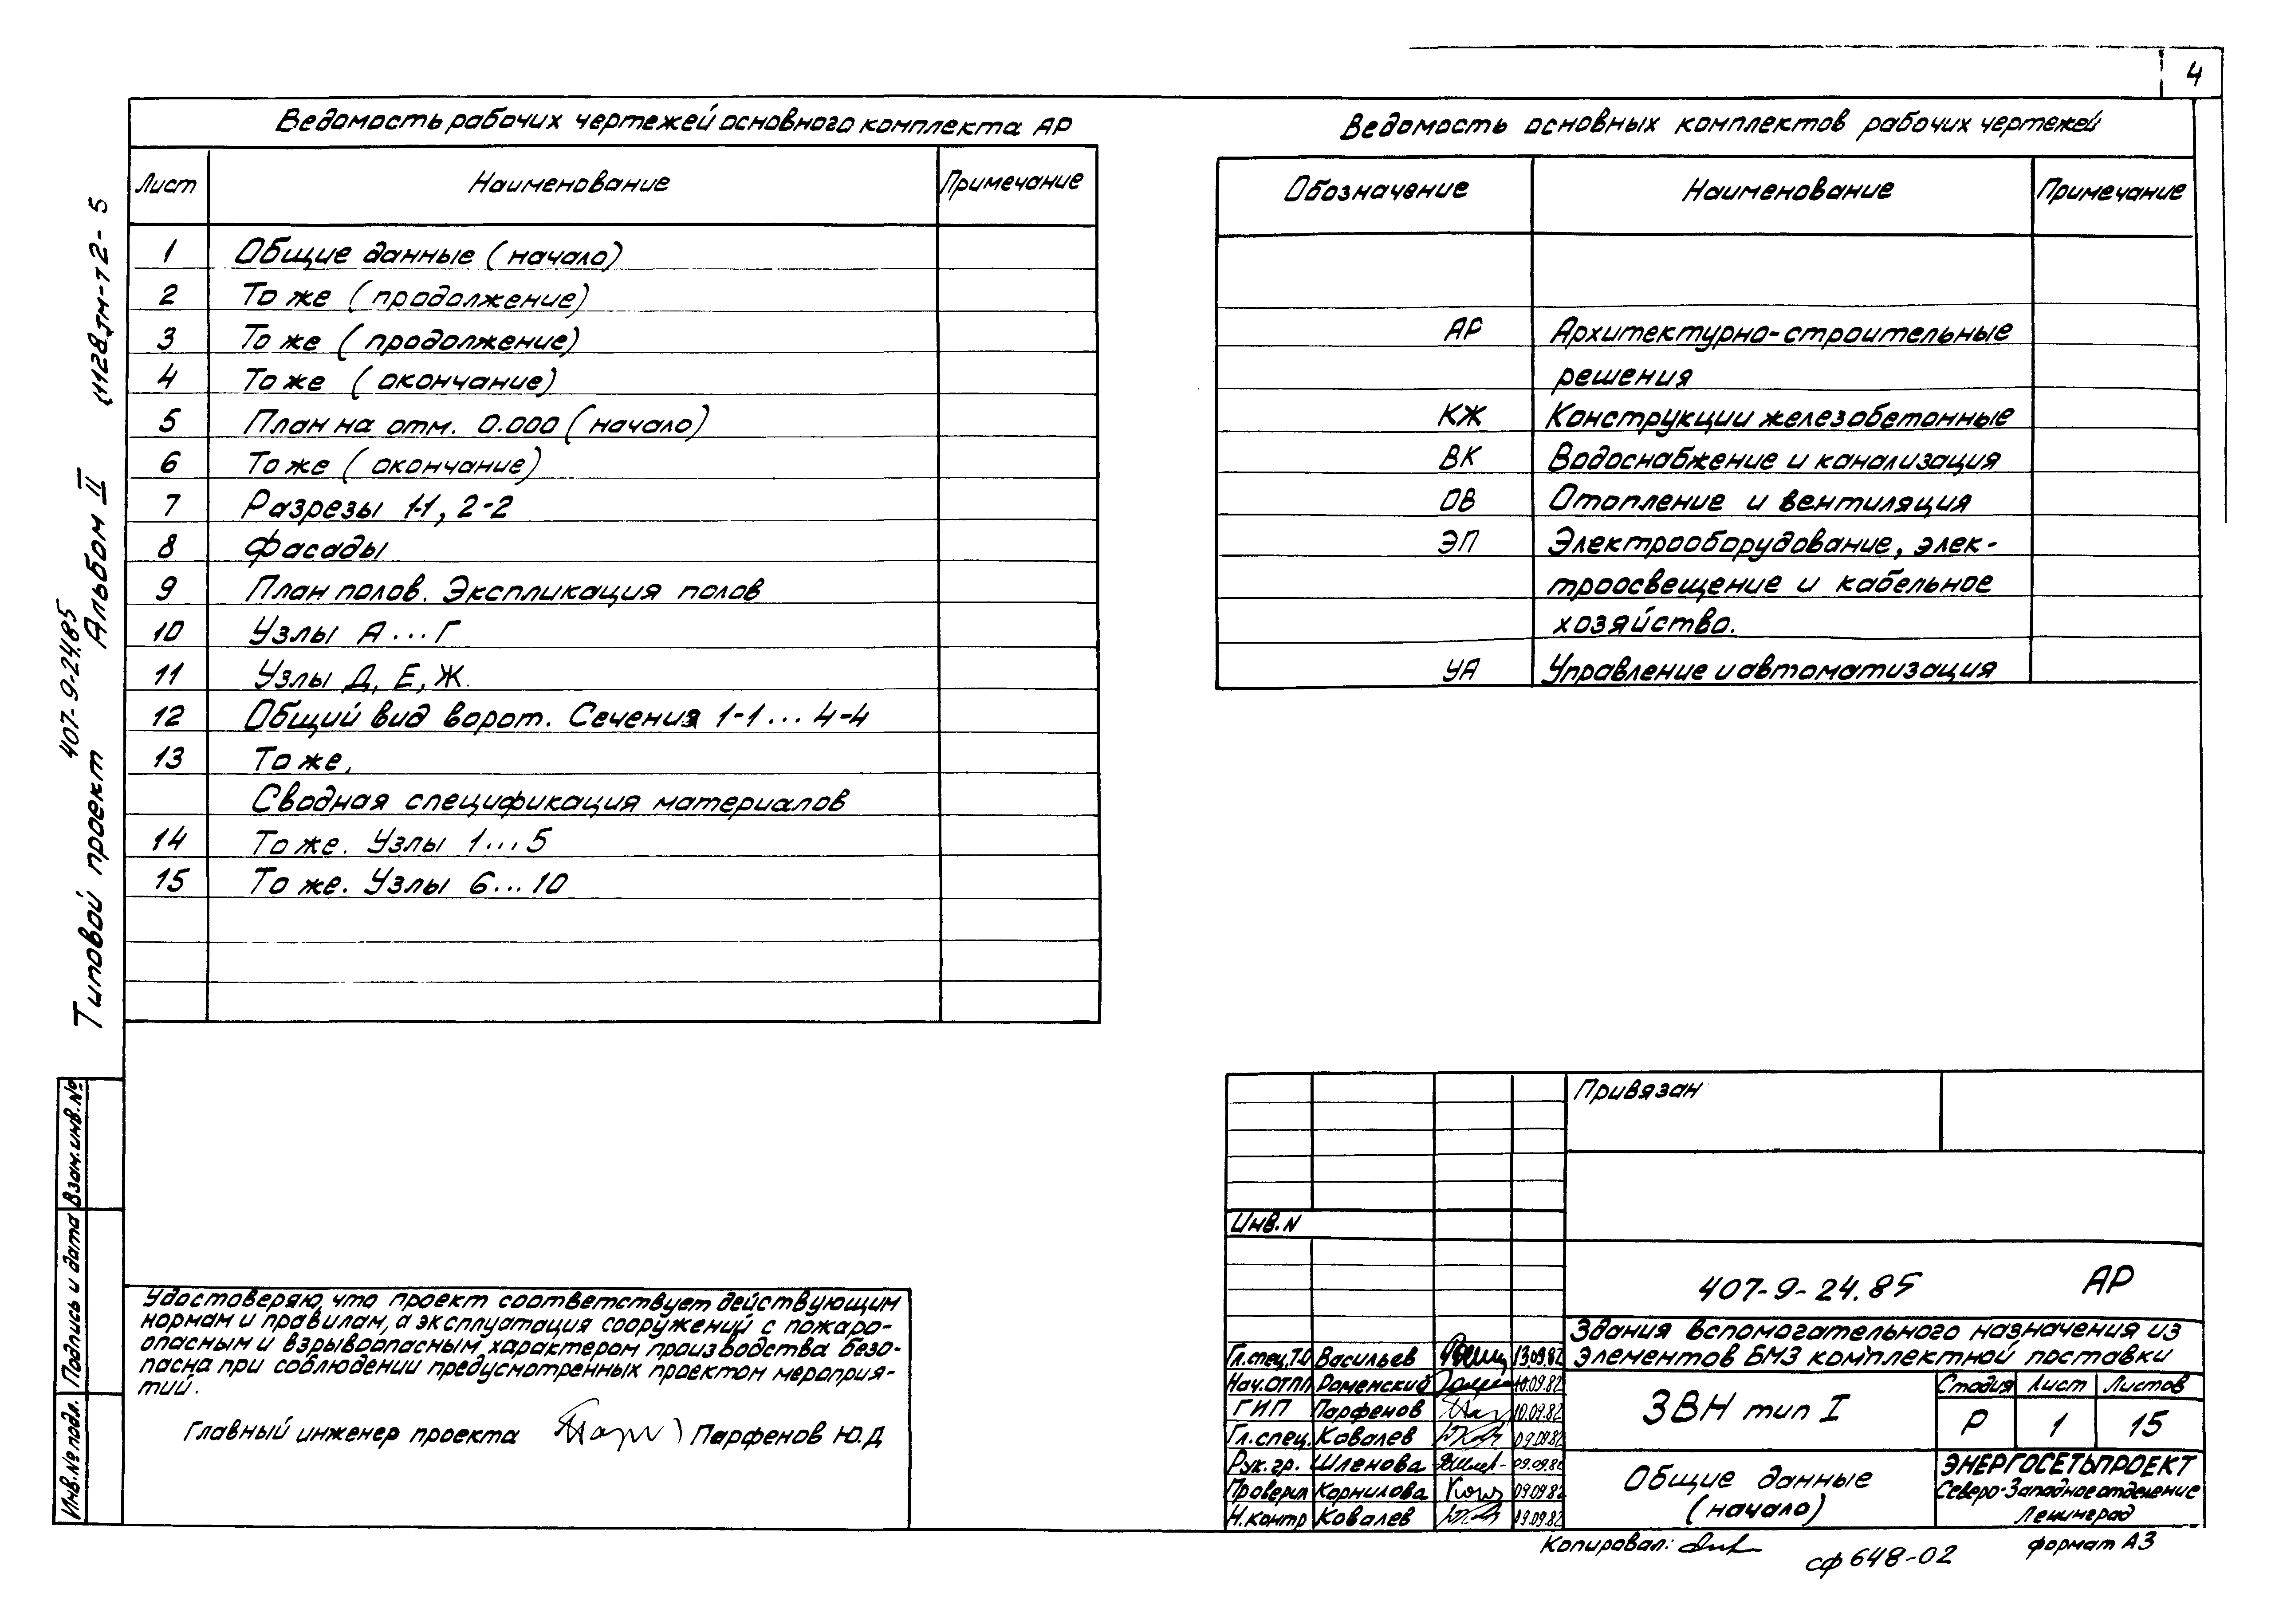 4
Ведомость рабочих чертежей основного комплекта АР
Лист Наименование Примечание
1 Общие данные (начало)
2 То же (продолжение)
3 То же (продолжение)
4 То же (окончание)
5 План на отм. 0.000 (начало)
6 То же (окончание)
7 Разрезы 1-1, 2-2
8 Фасады
9 План полов. Экспликация полов
10 Узлы А...Г
11 Узлы Д, Е, Ж.
12 Общий вид ворот. Сечения 1-1... 4-4
13 То же,
Сводная спецификация материалов
14 То же. Узлы 1...5
15 То же. Узлы 6...10
Ведомость основных комплектов рабочих чертежей
Обозначение Наименование Примечание
АР Архитектурно-строительные
решения
КЖ Конструкции железобетонные
ВК Водоснабжение и канализация
ОВ Отопление и вентиляция
ЭП Электрооборудование, элек-
троосвещение и кабельное
хозяйство.
УА Управление и автоматизация
Типовой проект 407-9-24.85 Альбом II 11128тм-т2-5
Взам.инв.№
Подпись и дата
Инв.№ подл.
Удостоверяю, что проект соответствует действующим
нормам и правилам, а эксплуатация сооружений с пожаро-
опасным и взрывоопасным характером производства безо-
пасна при соблюдении предусмотренных проектом мероприя-
тий.
Главный инженер проекта Парфенов Ю.Д
Привязан
Инв. N
407-9-24.85 АР
Здания вспомогательного назначения из
элементов БМЗ комплектной поставки
Гл.спец.Т.О Васильев 13.09.82
Нач.ОТПП Роменский 10.09.82
ГИП Парфенов 10.09.82
Гл.спец. Ковалев 09.09.82
Рук.гр. Шленова 09.09.82
Проверил Корнилова 09.09.82
Н.контр Ковалев 09.09.82
ЗВН тип I
Стадия Лист Листов
Р 1 15
Общие данные
(начало)
ЭНЕРГОСЕТЬПРОЕКТ
Северо-Западное отделение
Ленинград
Копировал: сф 648-02 формат А3